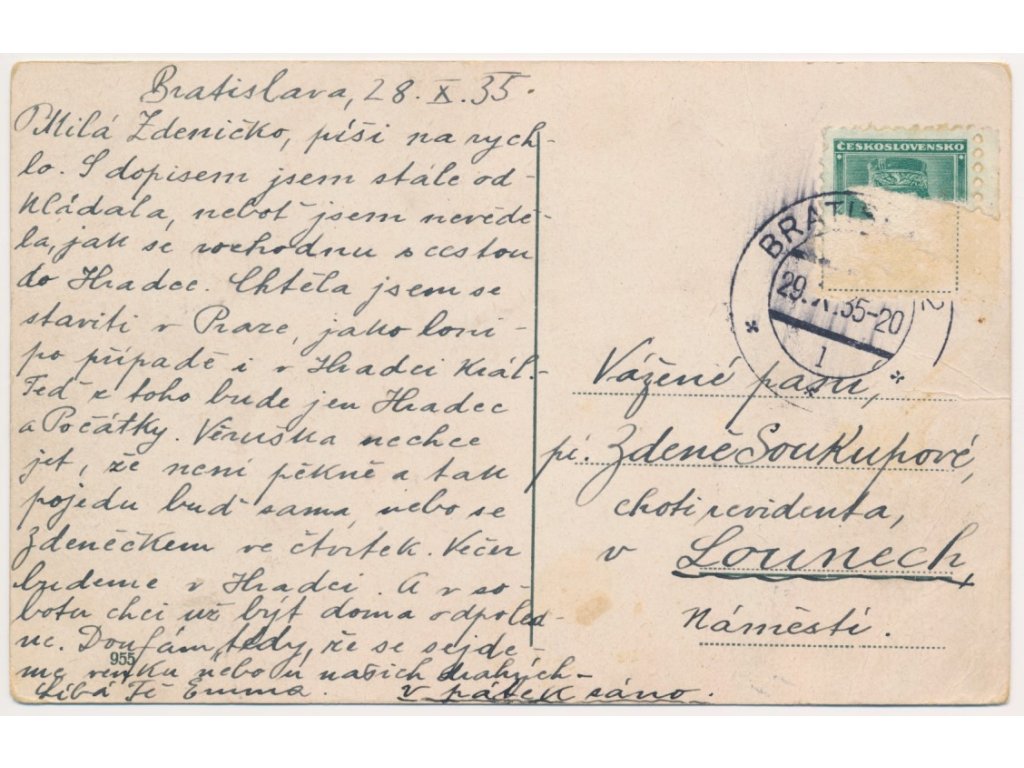 Bratislava, 28. X. 35.
Milá Zdeničko, píši narych-
lo. S dopisem jsem stále od-
kládala, neboť jsem nevědě-
la, jak se rozhodnu s cestou
do Hradce. Chtěla jsem se
staviti v Praze, jako loni -
po případě i v Hradci Král.-
Teď z toho bude jen Hradec
a Počátky. Věruška nechce
jet, že není pěkně a tak
pojedu buď sama, nebo se
Zdenečkem ve čtvrtek. Večer
budeme v Hradci. A v so-
botu chci už být doma odpoled-
ne. Doufám tedy, že se sejde-
me venku nebo u našich drahých-
v pátek ráno.
Líbá Tě Emma.
955
ČESKOSLOVENSKO
BRATIS
29. X. 35-20
1
Vážené paní,
pí. Zdeně Soukupové,
choti revidenta,
v Lounech
Náměstí.